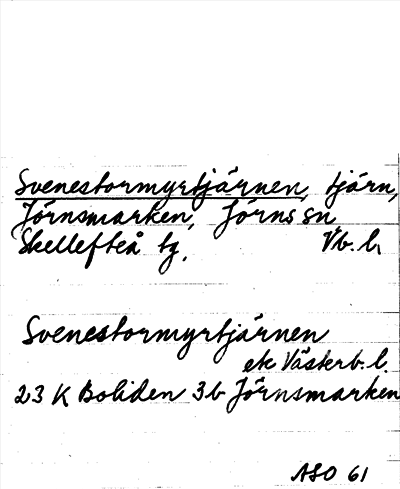 Svenestormyrtjärnen, tjärn,
Jörnsmarken, Jörns sn
Skellefteå tg. Vb. l.
Svenestormyrtjärnen
ek Västerb. l.
23 K Boliden 3b Jörnsmarken
ASO 61